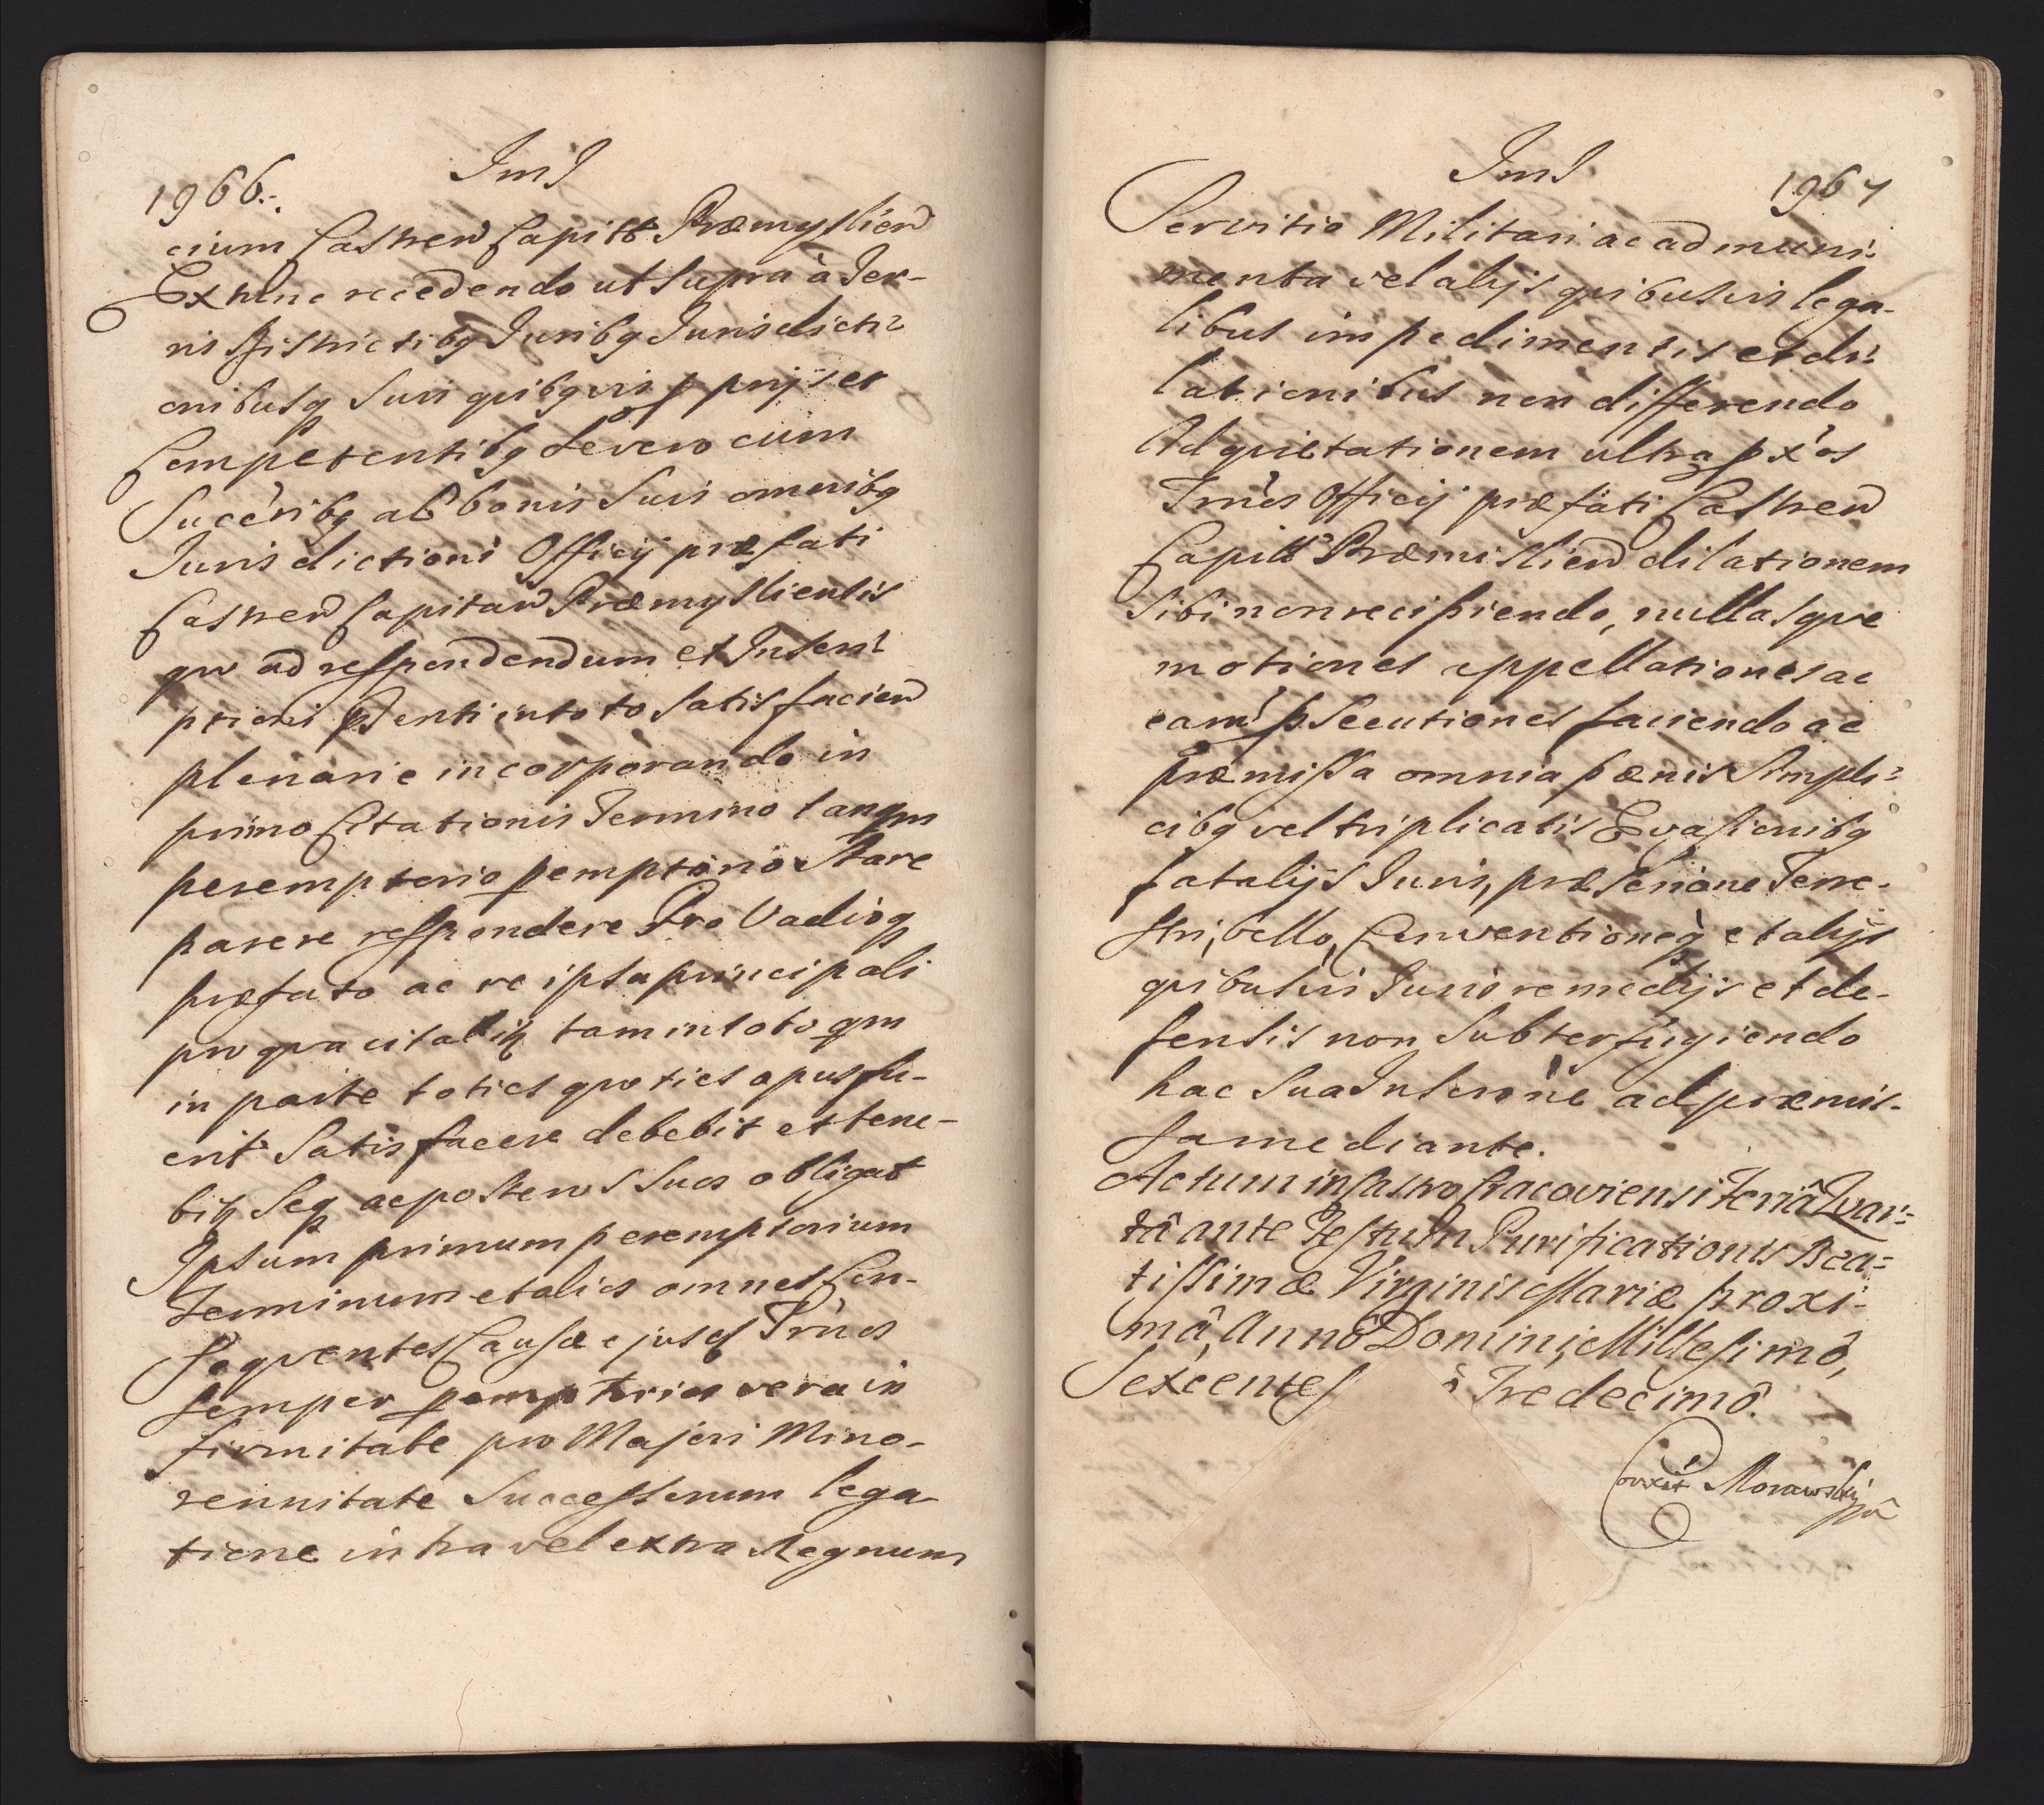 1966.
ImJ
cium Castren Capitt Præmyslien
Ex nunc recedendo ut supra à Ter-
ris Districtibq Juribq Jurisdicti
onibusq Suis qvibqvis pprijs et
Competentibq Se vero cum
Succribq ab bonis Suis omnibq
Jurisdictioni Officij præfati
Castren Capitan Præmysliensis
qvo ad respondendum et Inscri
ptioni pnti in toto Satisfaciend
plenarie incorporando in
primo Citationis Termino tanqm
peremptorio pemptorio Stare
parere respondere Pro Vadioq
præfato ac re ipsa principali
pro qva citabitq tam in toto qm
in parte toties qvoties opus fu-
erit Satisfacere debebit et tene-
bitq Seq ac posteros Suos obligat
Ipsum primum peremptorium
Terminum et alios omnes Con-
seqventes Causæ ejusq Trnos
semper pemptorios vera in
firmitate pro Majori Mino-
rennitate Successorum lega-
tione intra vel extra Regnum
ImJ
1967
Servitio Militari ac ad muni-
menta vel alijs qvibusvis lega-
libus impedimentis et di-
lationibus non differendo
Ad qvietationem ultra pxos
Trnos Officij præfati Castren
Capitt Præmislien dilationem
Sibi non recipiendo, nullasqve
motiones appellationes ac
eam psecutiones faciendo ac
præmissa omnia pænis Simpli-
cibq vel triplicatis Evasionibq
fatalijs Juris, præscrione Terre-
stri, bello, Conventioneq et alijs
qvibusvis Juris remedijs et de-
fensis non Subterfugiendo
hac Sua Inscrione ad præmis-
sa mediante.
Actum in Castro Cracoviensi Feriâ Qvar-
tâ ante Festum Purificationis Bea-
tissimæ Virginis Mariæ proxi-
mâ, Annô Domini Millesimô,
Sexcentes ô Tredecimô.
Corrxit Morawski